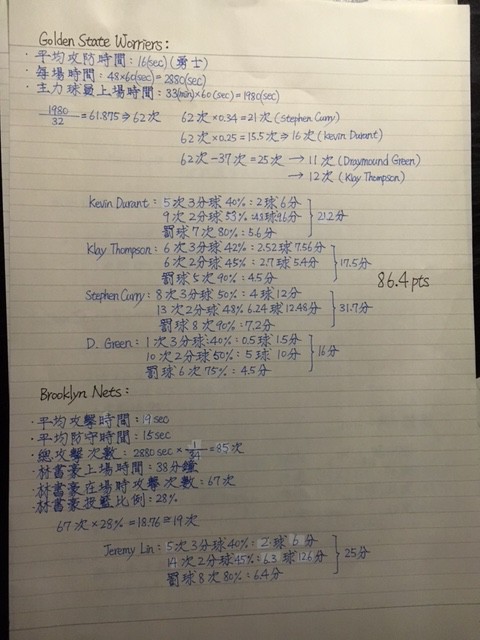 Golden State Worriers:
· 平均攻防時間: 16(sec) (勇士)
· 每場時間: 48×60(sec) = 2880(sec)
· 主力球員上場時間: 33(min)×60(sec) = 1980(sec)
1980/32 = 61.875 ⇒ 62次 62次×0.34 = 21次 (Stephen Curry)
62次×0.25 = 15.5次 ⇒ 16次 (Kevin Durant)
62次-37次 = 25次 → 11次 (Draymound Green)
→ 12次 (Klay Thompson)
Kevin Durant: 5次3分球40%: 2球6分
9次2分球53%: 4.8球9.6分 21.2分
罰球7次80%: 5.6分
Klay Thompson: 6次3分球42%: 2.52球7.56分
6次2分球45%: 2.7球5.4分 17.5分
罰球5次90%: 4.5分
86.4 pts
Stephen Curry: 8次3分球50%: 4球12分
13次2分球48% 6.24球12.48分 31.7分
罰球8次90%: 7.2分
D. Green: 1次3分球:40%: 0.5球1.5分
10次2分球50%: 5球10分 16分
罰球6次75%: 4.5分
Brooklyn Nets:
· 平均攻擊時間: 19sec
· 平均防守時間: 15sec
· 總攻擊次數: 2880sec × 1/34 = 85次
· 林書豪上場時間: 38分鐘
· 林書豪在場時攻擊次數: 67次
· 林書豪投籃比例: 28%
67次×28% = 18.76 ≅ 19次
Jeremy Lin: 5次3分球40%: 2球6分
14次2分球45%: 6.3球12.6分 25分
罰球8次80%: 6.4分